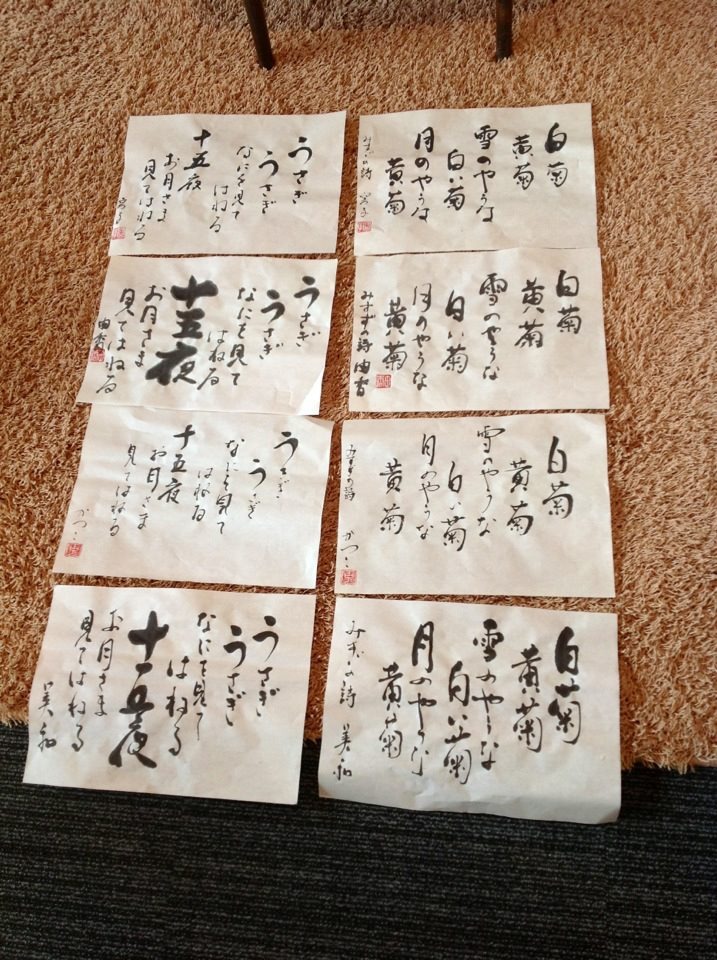 白菊
黄菊
雪のやうな
白い菊
月のやうな
黄菊
みすゞの詩
うさぎ
うさぎ
なにを見て
はねる
十五夜
お月さま
見てはねる
白菊
黄菊
雪のやうな
白い菊
月のやうな
黄菊
みすずの詩
うさぎ
うさぎ
なにを見て
はねる
十五夜
お月さま
見てはねる
白菊
黄菊
雪のやうな
白い菊
月のやうな
黄菊
みすゞの詩 かつこ
うさぎ
うさぎ
なにを見て
はねる
十五夜
お月さま
見てはねる
かつこ
白菊
黄菊
雪のやうな
白い菊
月のやうな
黄菊
みすゞの詩 美和
うさぎ
うさぎ
なにを見て
はねる
十五夜
お月さま
見てはねる
美和